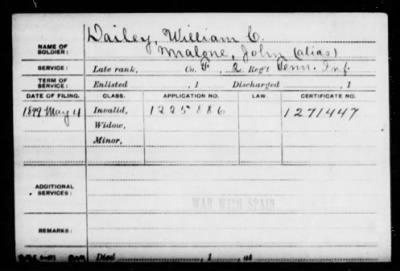 Dailey, William C.
NAME OF SOLDIER: Malone, John (alias)
SERVICE: Late rank, Co. F, 2 Reg't Tenn. Inf.
TERM OF SERVICE: Enlisted , 1 Discharged , 1
DATE OF FILING. CLASS. APPLICATION NO. LAW. CERTIFICATE NO.
1899 May 4 Invalid, 1225886 1271447
Widow,
Minor,
ADDITIONAL SERVICES:
WAR WITH SPAIN
REMARKS:
Died , 1 , at